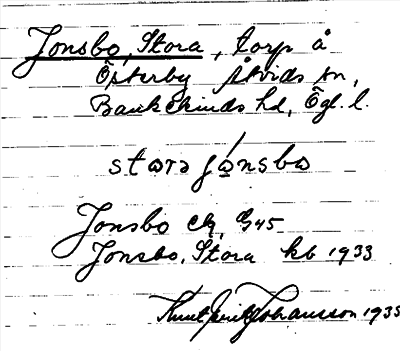 Jonsbo, Stora, torp å
Österby Åtvids sn,
Bankekinds hd, Ögl. l.
stωrə jónsbω
Jonsbo Ek, G45
Jonsbo, Stora kb 1933
Knut Johansson 1935